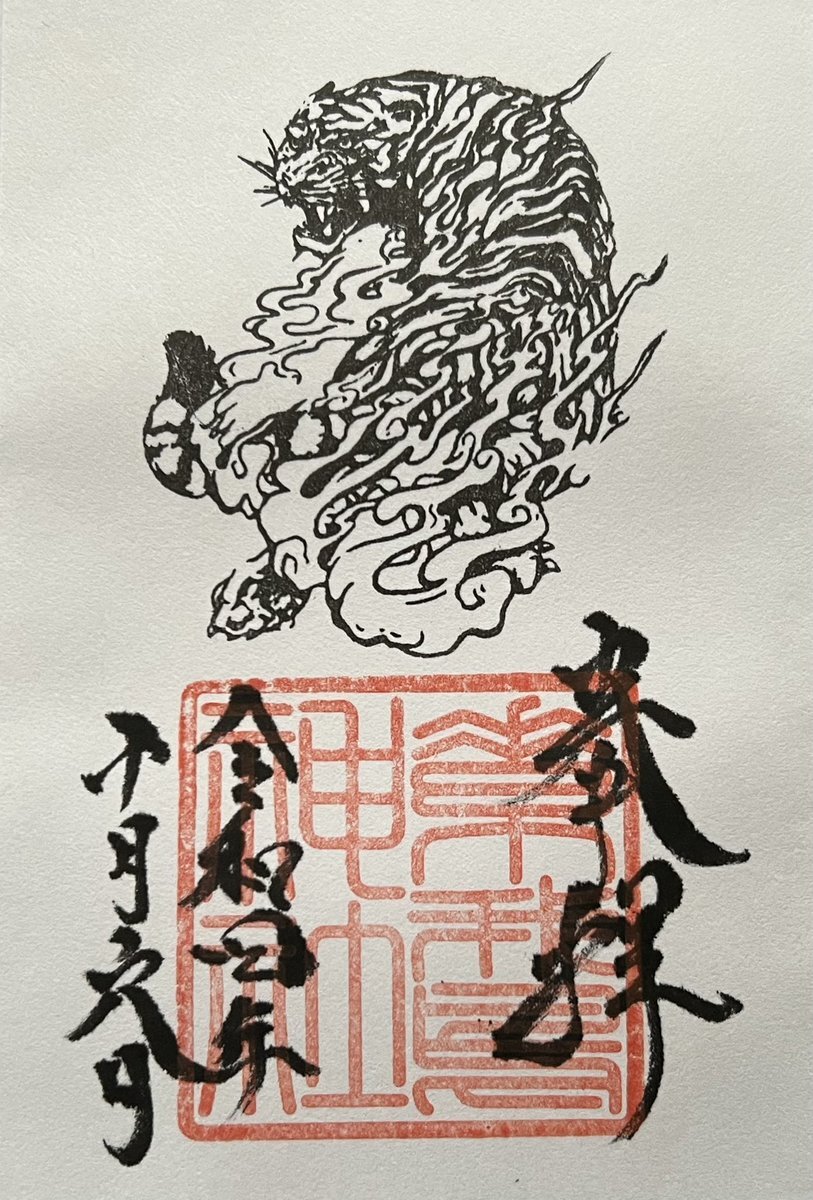 奉拝
神社
令和四年
十月六日